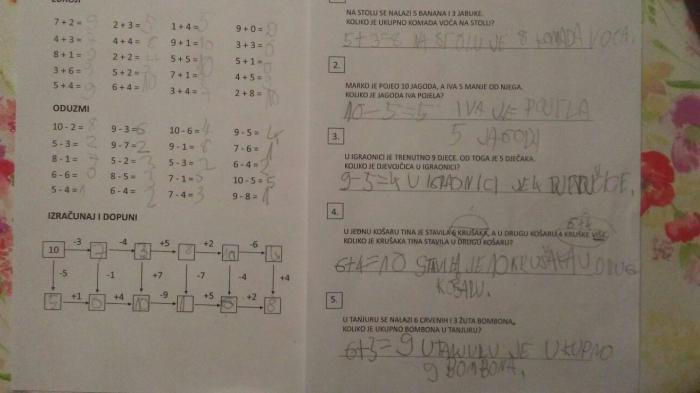 7 + 2 = 9 2 + 3 = 5 1 + 4 = 5 9 + 0 = 9
4 + 3 = 7 4 + 4 = 8 9 + 1 = 10 3 + 3 =
8 + 1 = 9 2 + 2 = 5 + 5 = 10 5 + 1 =
3 + 6 = 5 + 2 = 7 + 1 = 4 + 5 =
5 + 4 = 9 6 + 4 = 10 3 + 4 = 2 + 8 = 10
ODUZMI
10 - 2 = 8 9 - 3 = 6 10 - 6 = 4 9 - 5 = 4
5 - 3 = 2 9 - 7 = 2 9 - 1 = 8 7 - 6 = 1
8 - 1 = 7 5 - 2 = 3 5 - 3 = 2 6 - 4 = 2
6 - 6 = 0 8 - 5 = 3 7 - 1 = 10 - 5 = 5
5 - 4 = 1 6 - 4 = 2 7 - 4 = 3 9 - 8 = 1
IZRAČUNAJ I DOPUNI
10 -3 7 -4 3 +5 8 +2 10 -6
-5 -1 +7 -7 -4 +4
5 +1 6 +4 10 -9 1 +5 6 +2 8
NA STOLU SE NALAZI 5 BANANA I 3 JABUKE.
KOLIKO JE UKUPNO KOMADA VOĆA NA STOLU?
5+3=8 NA STOLU JE 8 KOMADA VOĆA.
2.
MARKO JE POJEO 10 JAGODA, A IVA 5 MANJE OD NJEGA.
KOLIKO JE JAGODA IVA POJELA?
10-5=5 IVA JE POJELA
5 JAGODA
3.
U IGRAONICI JE TRENUTNO 9 DJECE. OD TOGA JE 5 DJEČAKA.
KOLIKO JE DJEVOJČICA U IGRAONICI?
9-5=4 U IGRAONICI JE 4
4.
6+4
U JEDNU KOŠARU TINA JE STAVILA 6 KRUŠAKA, A U DRUGU KOŠARU 4 KRUŠKE VIŠE.
KOLIKO JE KRUŠAKA TINA STAVILA U DRUGU KOŠARU?
6+4=10 STAVILA JE 10 KRUŠAKA U DRUGU
KOŠARU.
5.
U TANJURU SE NALAZI 6 CRVENIH I 3 ŽUTA BOMBONA.
KOLIKO JE UKUPNO BOMBONA U TANJURU?
6+3=9 U TANJURU JE UKUPNO
9 BOMBONA.